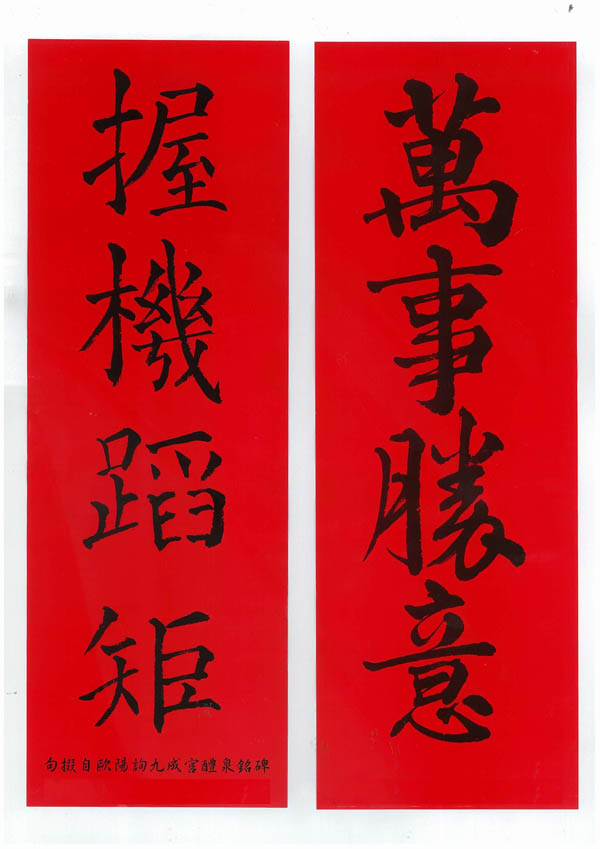 萬事勝意
握機蹈矩
句掇自歐陽詢九成宮醴泉銘碑